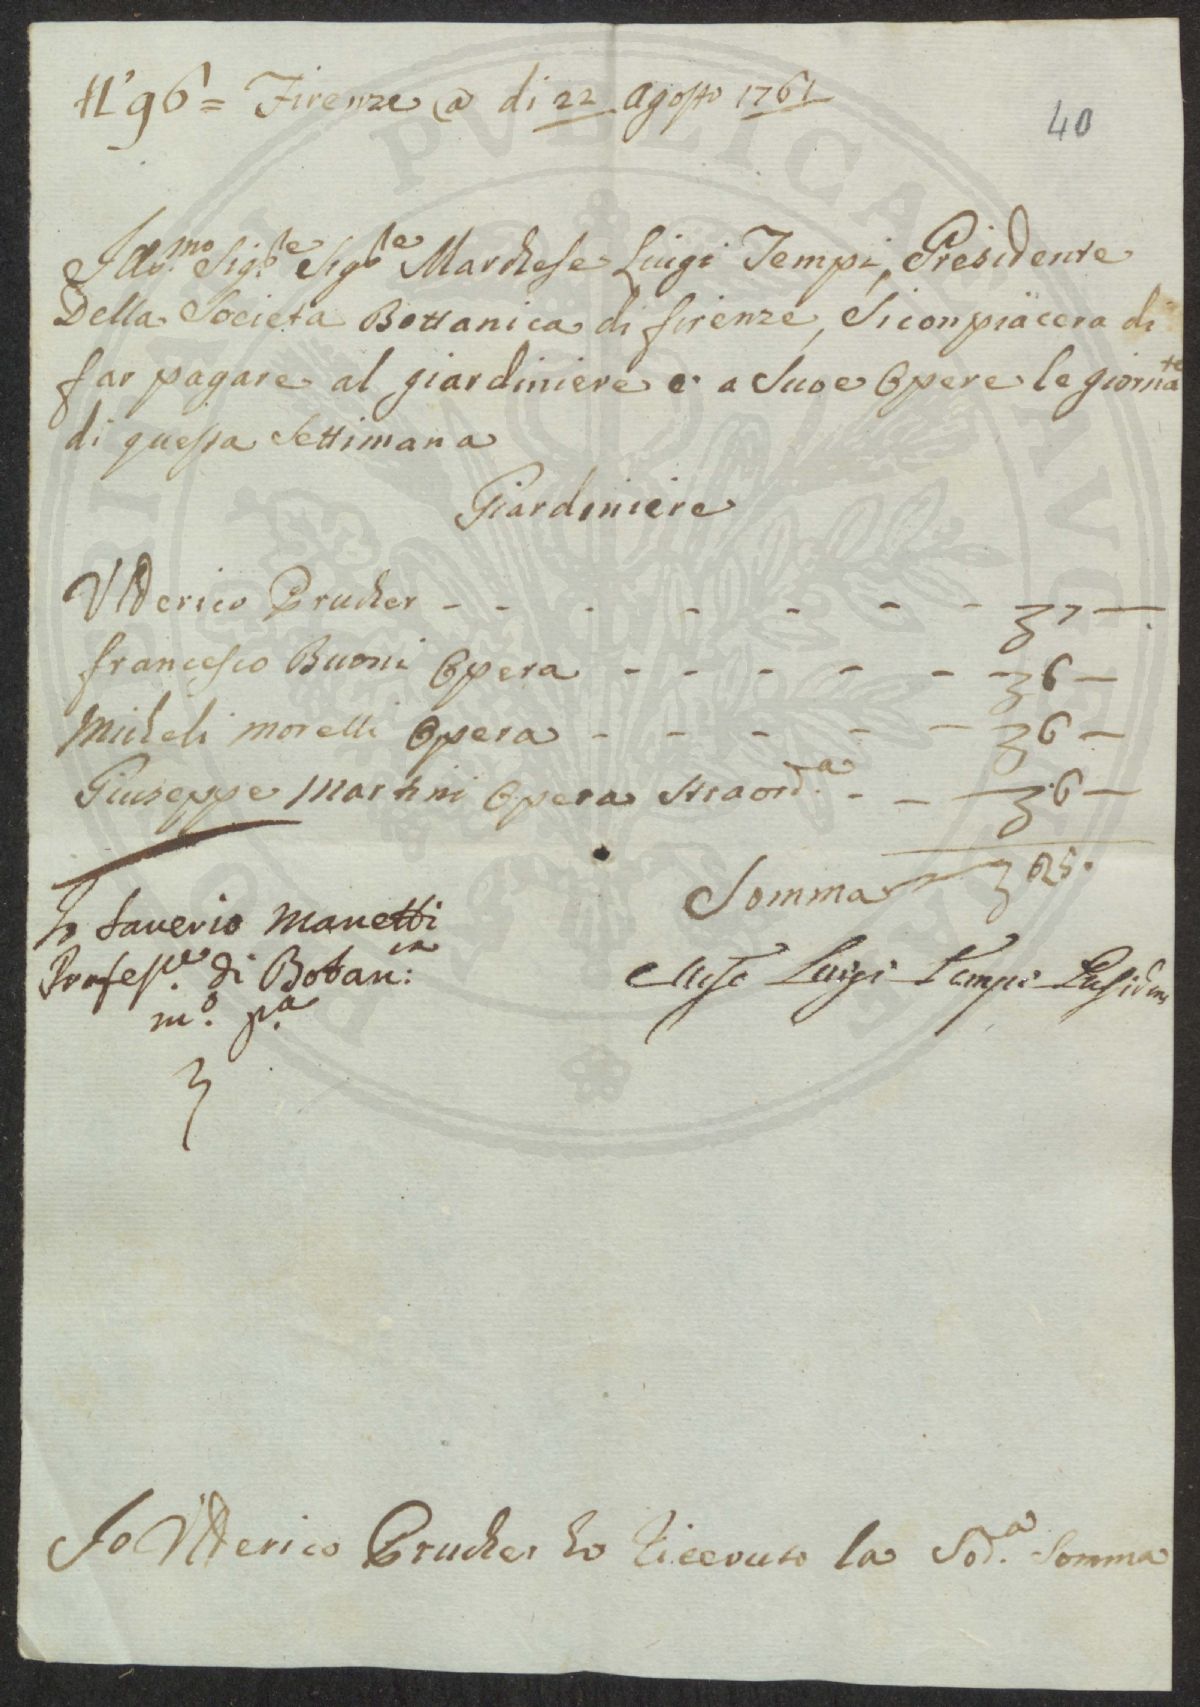 N.° 96 = Firenze @ di 22 Agosto 1761
40
Ill.mo Sig.re Sig.re Marchese Luigi Tempi, Presidente
Della Societa Bottanica di firenze, Si conpiacera di
far pagare al giardiniere e a Suoe Opere le giornate
di questa Settimana
Giardiniere
Ulderico Prucher - - - - - - - 7 —
francesco Buoni Opera - - - - - - 6 —
Micheli morelli Opera - - - - - 6 —
Giuseppe Martini Opera Straord.a - - 6 —
Somma 25.
Io Saverio Manetti
Profes.re di Botan:ca
m.o p.a
Luigi Tempi Presidente
Io Ulderico Prucher ho riceuuto la Sod.a Somma
PVBLICAE